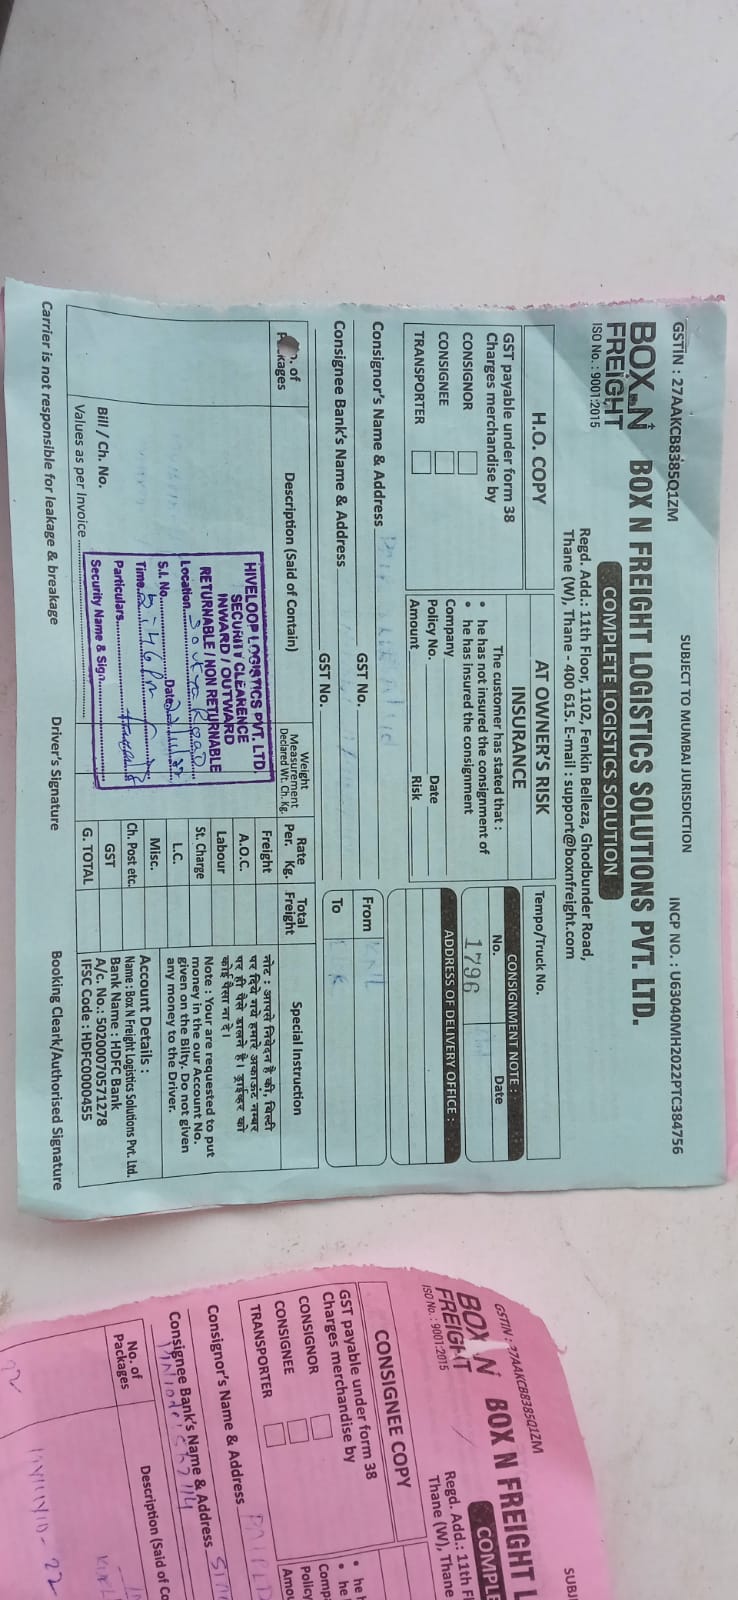 GSTIN : 27AAKCB8385Q1ZM
SUBJECT TO MUMBAI JURISDICTION
INCP NO. : U63040MH2022PTC384756
BOX N FREIGHT
ISO No. : 9001:2015
BOX N FREIGHT LOGISTICS SOLUTIONS PVT. LTD.
COMPLETE LOGISTICS SOLUTION
Regd. Add.: 11th Floor, 1102, Fenkin Belleza, Ghodbunder Road,
Thane (W), Thane - 400 615. E-mail : support@boxnfreight.com
H.O. COPY
AT OWNER'S RISK
Tempo/Truck No.
GST payable under form 38
Charges merchandise by
CONSIGNOR
CONSIGNEE
TRANSPORTER
INSURANCE
The customer has stated that :
• he has not insured the consignment of
• he has insured the consignment
Company
Policy No.
Date
Amount
Risk
CONSIGNMENT NOTE :
No.
Date
1796
ADDRESS OF DELIVERY OFFICE :
Consignor's Name & Address
GST No.
Consignee Bank's Name & Address
GST No.
From
To
of
kages
Description (Said of Contain)
Weight
Measurement
Declared Wt. Ch. Kg.
Rate
Per. Kg.
Total
Freight
Special Instruction
Freight
A.O.C.
Labour
St. Charge
L.C.
Misc.
Ch. Post etc.
GST
G. TOTAL
नोट : आपसे निवेदन है की, बिल्टी
पर दिये गये हमारे अकाऊंट नम्बर
पर ही पैसे डालने है। ड्राईवर को
कोई पैसा ना दे।
Note : Your are requested to put
money in the our Account No.
given on the Bilty. Do not given
any money to the Driver.
Account Details :
Name : Box N Freight Logistics Solutions Pvt. Ltd.
Bank Name : HDFC Bank
A/c. No.: 50200070571278
IFSC Code : HDFC0000455
HIVELOOP LOGISTICS PVT. LTD.
SECURITY CLEARENCE
INWARD / OUTWARD
RETURNABLE / NON RETURNABLE
Location
S.I. No. Date
Time
Particulars
Security Name & Sign
Bill / Ch. No.
Values as per Invoice
Carrier is not responsible for leakage & breakage
Driver's Signature
Booking Cleark/Authorised Signature
GSTIN : 27AAKCB8385Q1ZM
SUBJ
BOX N FREIGHT
ISO No. : 9001:2015
BOX N FREIGHT L
COMPLE
Regd. Add.: 11th Fl
Thane (W), Thane
CONSIGNEE COPY
GST payable under form 38
Charges merchandise by
CONSIGNOR
CONSIGNEE
TRANSPORTER
• he h
• he
Comp
Policy
Amou
Consignor's Name & Address
Consignee Bank's Name & Address
No. of
Packages
Description (Said of Co